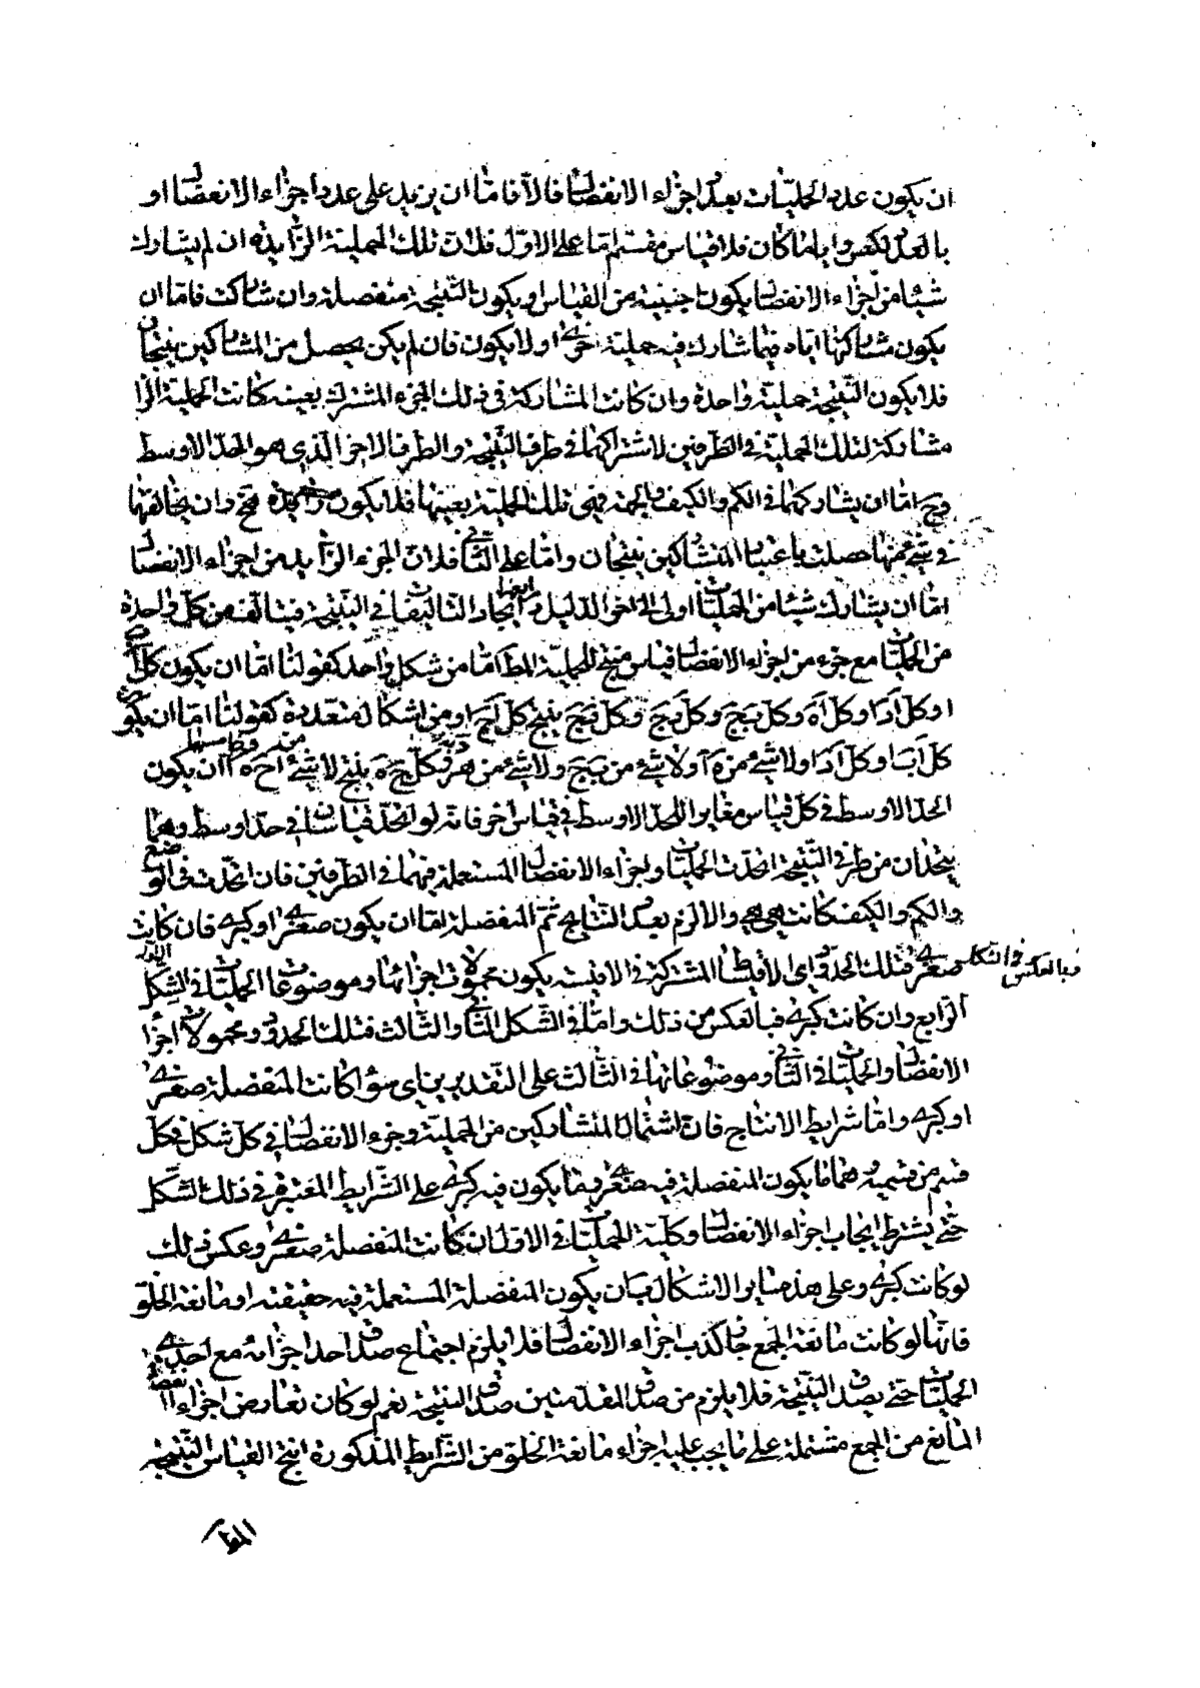 ان يكون عدد الحمليات بعدد اجزاء الانفصال والا فاما ان يزيد على عدد اجزاء الانفصال او
بالعكس وايا ما كان فلا قياس مقسم اما على الاول فلان تلك الحملية الزايدة ان لم يشارك
شيئا من اجزاء الانفصال يكون اجنبية من القياس او يكون النتيجة منفصلة وان شاركت فاما ان
يكون مشاركتها اياه فيما شارك فيه حملية اخرى اولا يكون فان لم يكن يحصل من المشاركين نتيجتان
فلا يكون النتيجة حملية واحدة وان كانت المشاركة في ذلك الجزء المشترك بعينه كانت الحملية الزا
مشاركة لتلك الحملية في الطرفين لاشتراكهما في طرف النتيجة والطرف الاخر الذي هو الحد الاوسط
وح اما ان يشاركها في الكم والكيف والجهة فهى تلك الحملية بعينها فلا يكون زايدة وان يخالفها
في شيء منها حصلت باعتبار المتشاركين نتيجتان واما على الثاني فلان الجزء الزايد من اجزاء الانفصال
اما ان يشارك شيئا من الحمليات اولى الى اخر الدليل وايضا اتحاد التاليفات في النتيجة فيتالف من كل واحدة
من الحمليات مع جزء من اجزاء الانفصال قياس منتج للحملية المط اما من شكل واحد كقولنا اما ان يكون كل آ
او كل آد او كل آه وكل بج وكل دج وكل هج ينتج كل آج او من اشكال متعددة كقولنا اما ان يكو
كل آب او كل آد او لا شيء من ه آ ولا شيء من بج ولا شيء من وكل جه ينتج لا شيء من آج ان يكون
الحد الاوسط في كل قياس مغاير للحد الاوسط في قياس اخر فانه لو اتحد قياسان في حد اوسط وهما
يتحدان من طرفي النتيجة اتحدت الحمليات واجزاء الانفصال المستعملة فيهما في الطرفين فان اتحدت في الوضع
والكم والكيف كانت هي هي والا لزم تعدد النتايج ثم المنفصلة اما ان يكون صغرى او كبرى فان كانت
صغرى فتلك الحدود اي الاوساط المشتركة في الاقيسة يكون محمولات اجزائها وموضوعات الحمليات في الشكل الاول
وبالعكس في الشكل
الرابع وان كانت كبرى فبالعكس من ذلك واما في الشكل الثاني والثالث فتلك الحدود محمولات اجزا
الانفصال والحمليات في الثاني وموضوعاتها في الثالث على التقديرين اي سواء كانت المنفصلة صغرى
او كبرى واما شرايط الانتاج فان اشتمال المتشاركين من الحملية وجزء الانفصال في كل شكل في كل
قسم من قسميه وهما ما يكون المنفصلة فيه صغرى وما يكون فيه كبرى على الشرايط المعتبرة في ذلك الشكل
حتى يشترط ايجاب اجزاء الانفصال وكلية الحمليات في الاول ان كانت المنفصلة صغرى وعكس ذلك
لو كانت كبرى وعلى هذا ساير الاشكال وبان يكون المنفصلة المستعملة فيه حقيقية او مانعة الخلو
فانها لو كانت مانعة الجمع جاز كذب اجزاء الانفصال فلا يلزم اجتماع صدق احد اجزائه مع احدى
الحمليات حتى يصدق النتيجة فلا يلزم من صدق المقدمتين صدق النتيجة نعم لو كان نقايض اجزاء
المانع من الجمع مشتملة على ما يجب عليه اجزاء مانعة الخلو من الشرايط المذكورة انتج القياس النتيجة